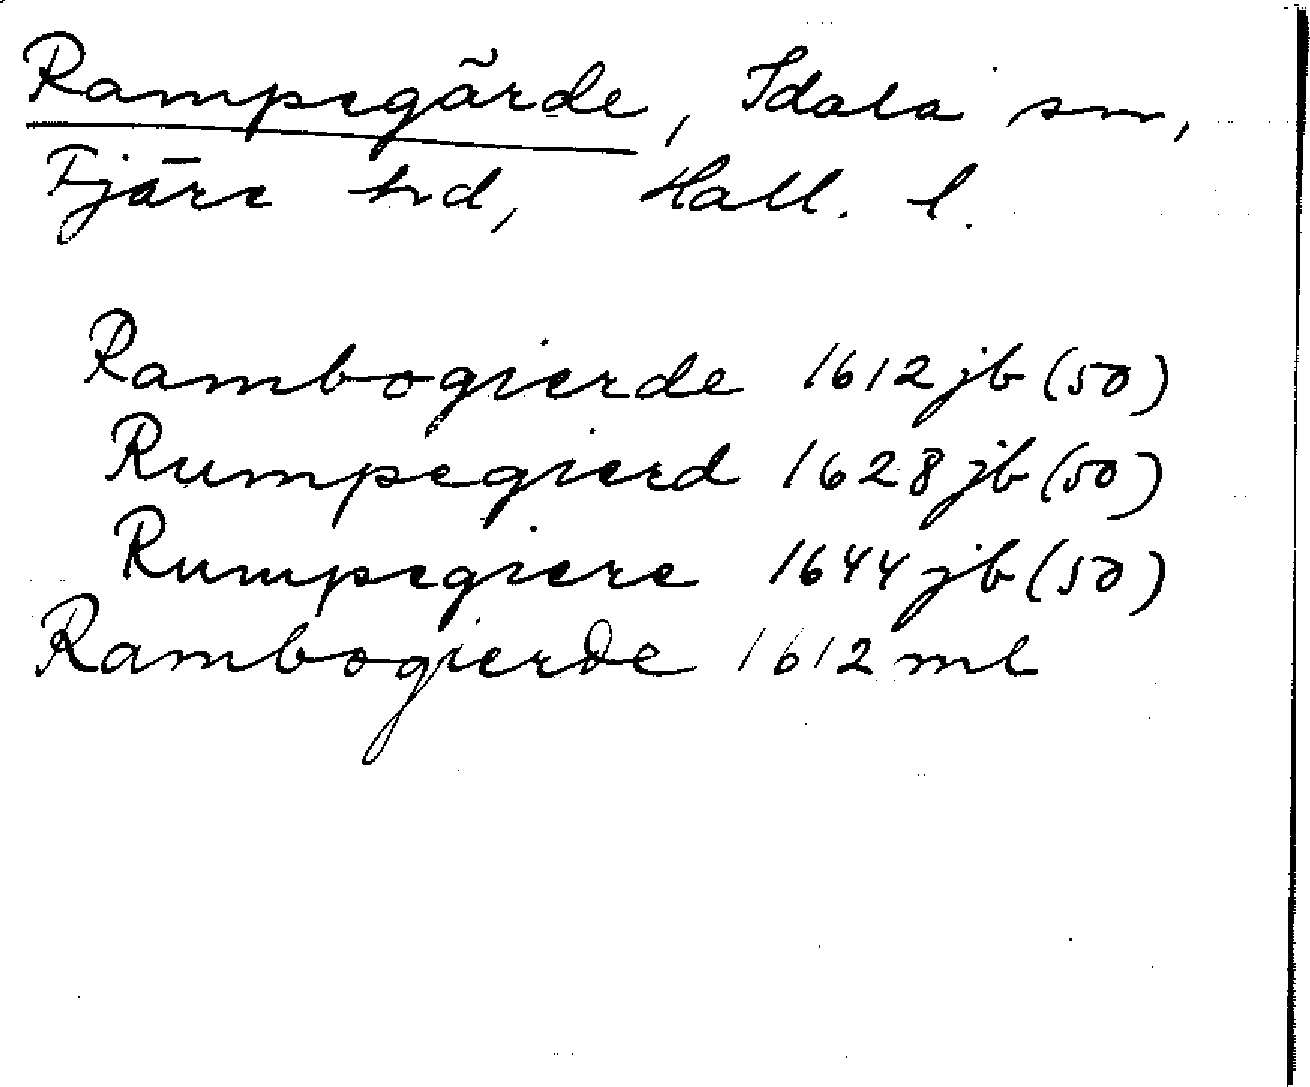 Rampegärde, Idala sn,
Fjäre hd, Hall. l.
Rambogierde 1612 jb (50)
Rumpegierd 1628 jb (50)
Rumpegiere 1644 jb (50)
Rambogierde 1612 ml